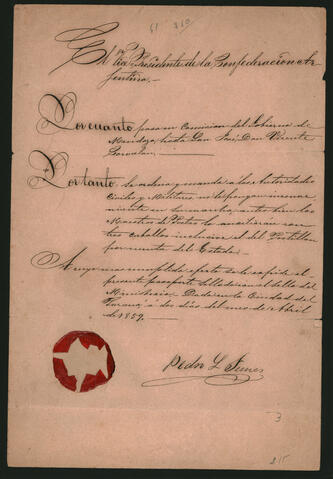 El Vice Presidente de la Confederacion Ar-
gentina.
Por cuanto pasa en Comision del Gobierno de
Mendoza hasta San José Don Vicente
Por tanto se ordena y manda a las Autoridades
Civiles y Militares no le pongan inconve-
niente en su marcha, antes bien los
Maestros de Postas lo auxiliaran con
tres caballos inclusive el del Postillon
por cuenta del Estado.
A cuyo mas cumplido efecto se le espide el
presente pasaporte sellado con el sello del
Ministerio. Dado en la Ciudad del
Paraná a dos dias del mes de Abril
de 1859.
Pedro L Funes
3
215